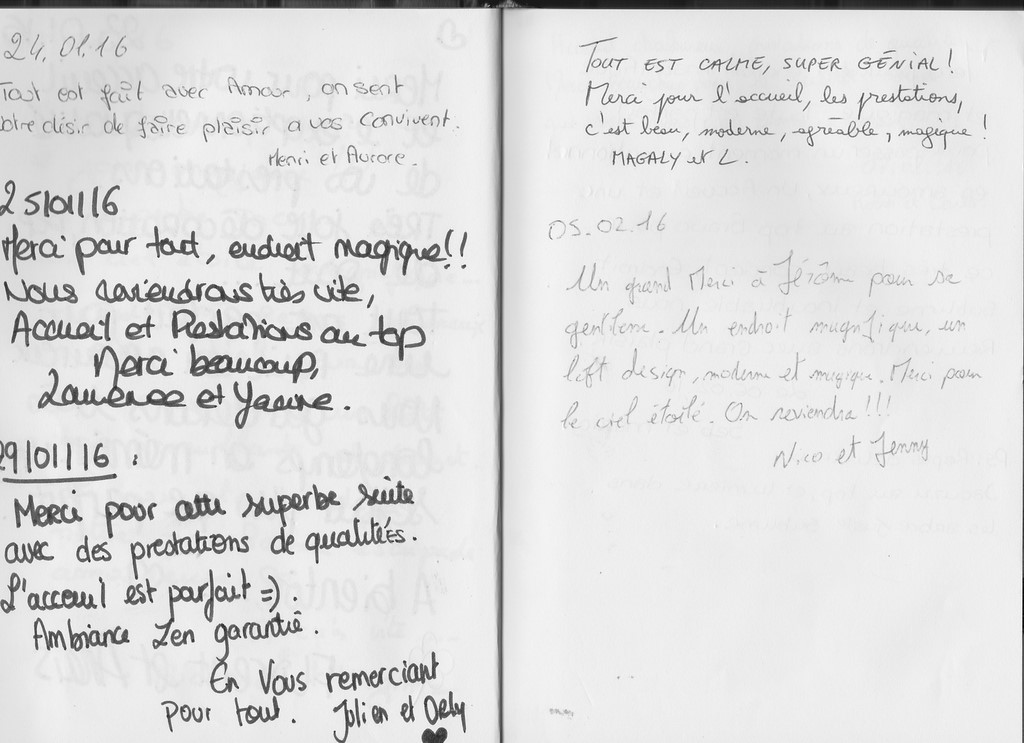 24.01.16
Tout est fait avec Amour, on sent
otre désir de faire plaisir a vos Convivent.
Henri et Aurore.
25/01/16
Merci pour tout, endroit magique!!
Nous reviendrons très vite,
Accueil et Prestations au top
Merci beaucoup,
Laurence et Yanne.
29/01/16 :
Merci pour cette superbe suite
avec des prestations de qualités.
L'acceuil est parfait =).
Ambiance Zen garantie.
En Vous remerciant
pour tout. Julien et Orely
TOUT EST CALME, SUPER GÉNIAL!
Merci pour l'accueil, les prestations,
c'est beau, moderne, agréable, magique!
MAGALY et L.
05.02.16
Un grand Merci à Jérôme pour sa
gentillesse. Un endroit magnifique, un
loft design, moderne et magique. Merci pour
le ciel étoilé. On reviendra!!!
Nico et Jenny